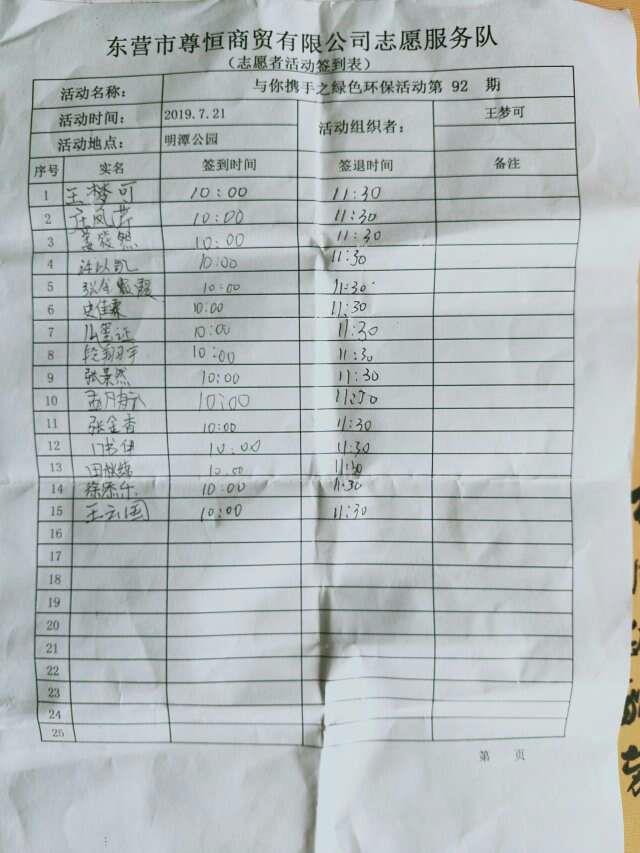 东营市尊恒商贸有限公司志愿服务队
（志愿者活动签到表）
活动名称： 与你携手之绿色环保活动第 92 期
活动时间： 2019.7.21 活动组织者： 王梦可
活动地点： 明潭公园
序号 实名 签到时间 签退时间 备注
1 王梦可 10:00 11:30
2 10:00 11:30
3 10:00 11:30
4 10:00 11:30
5 10:00 11:30
6 史佳霖 10:00 11:30
7 10:00 11:30
8 10:00 11:30
9 张景然 10:00 11:30
10 10:00 11:30
11 张金香 10:00 11:30
12 10:00 11:30
13 10:00 11:30
14 徐添乐 10:00 11:30
15 王云国 10:00 11:30
16
17
18
19
20
21
22
23
24
25
第 页